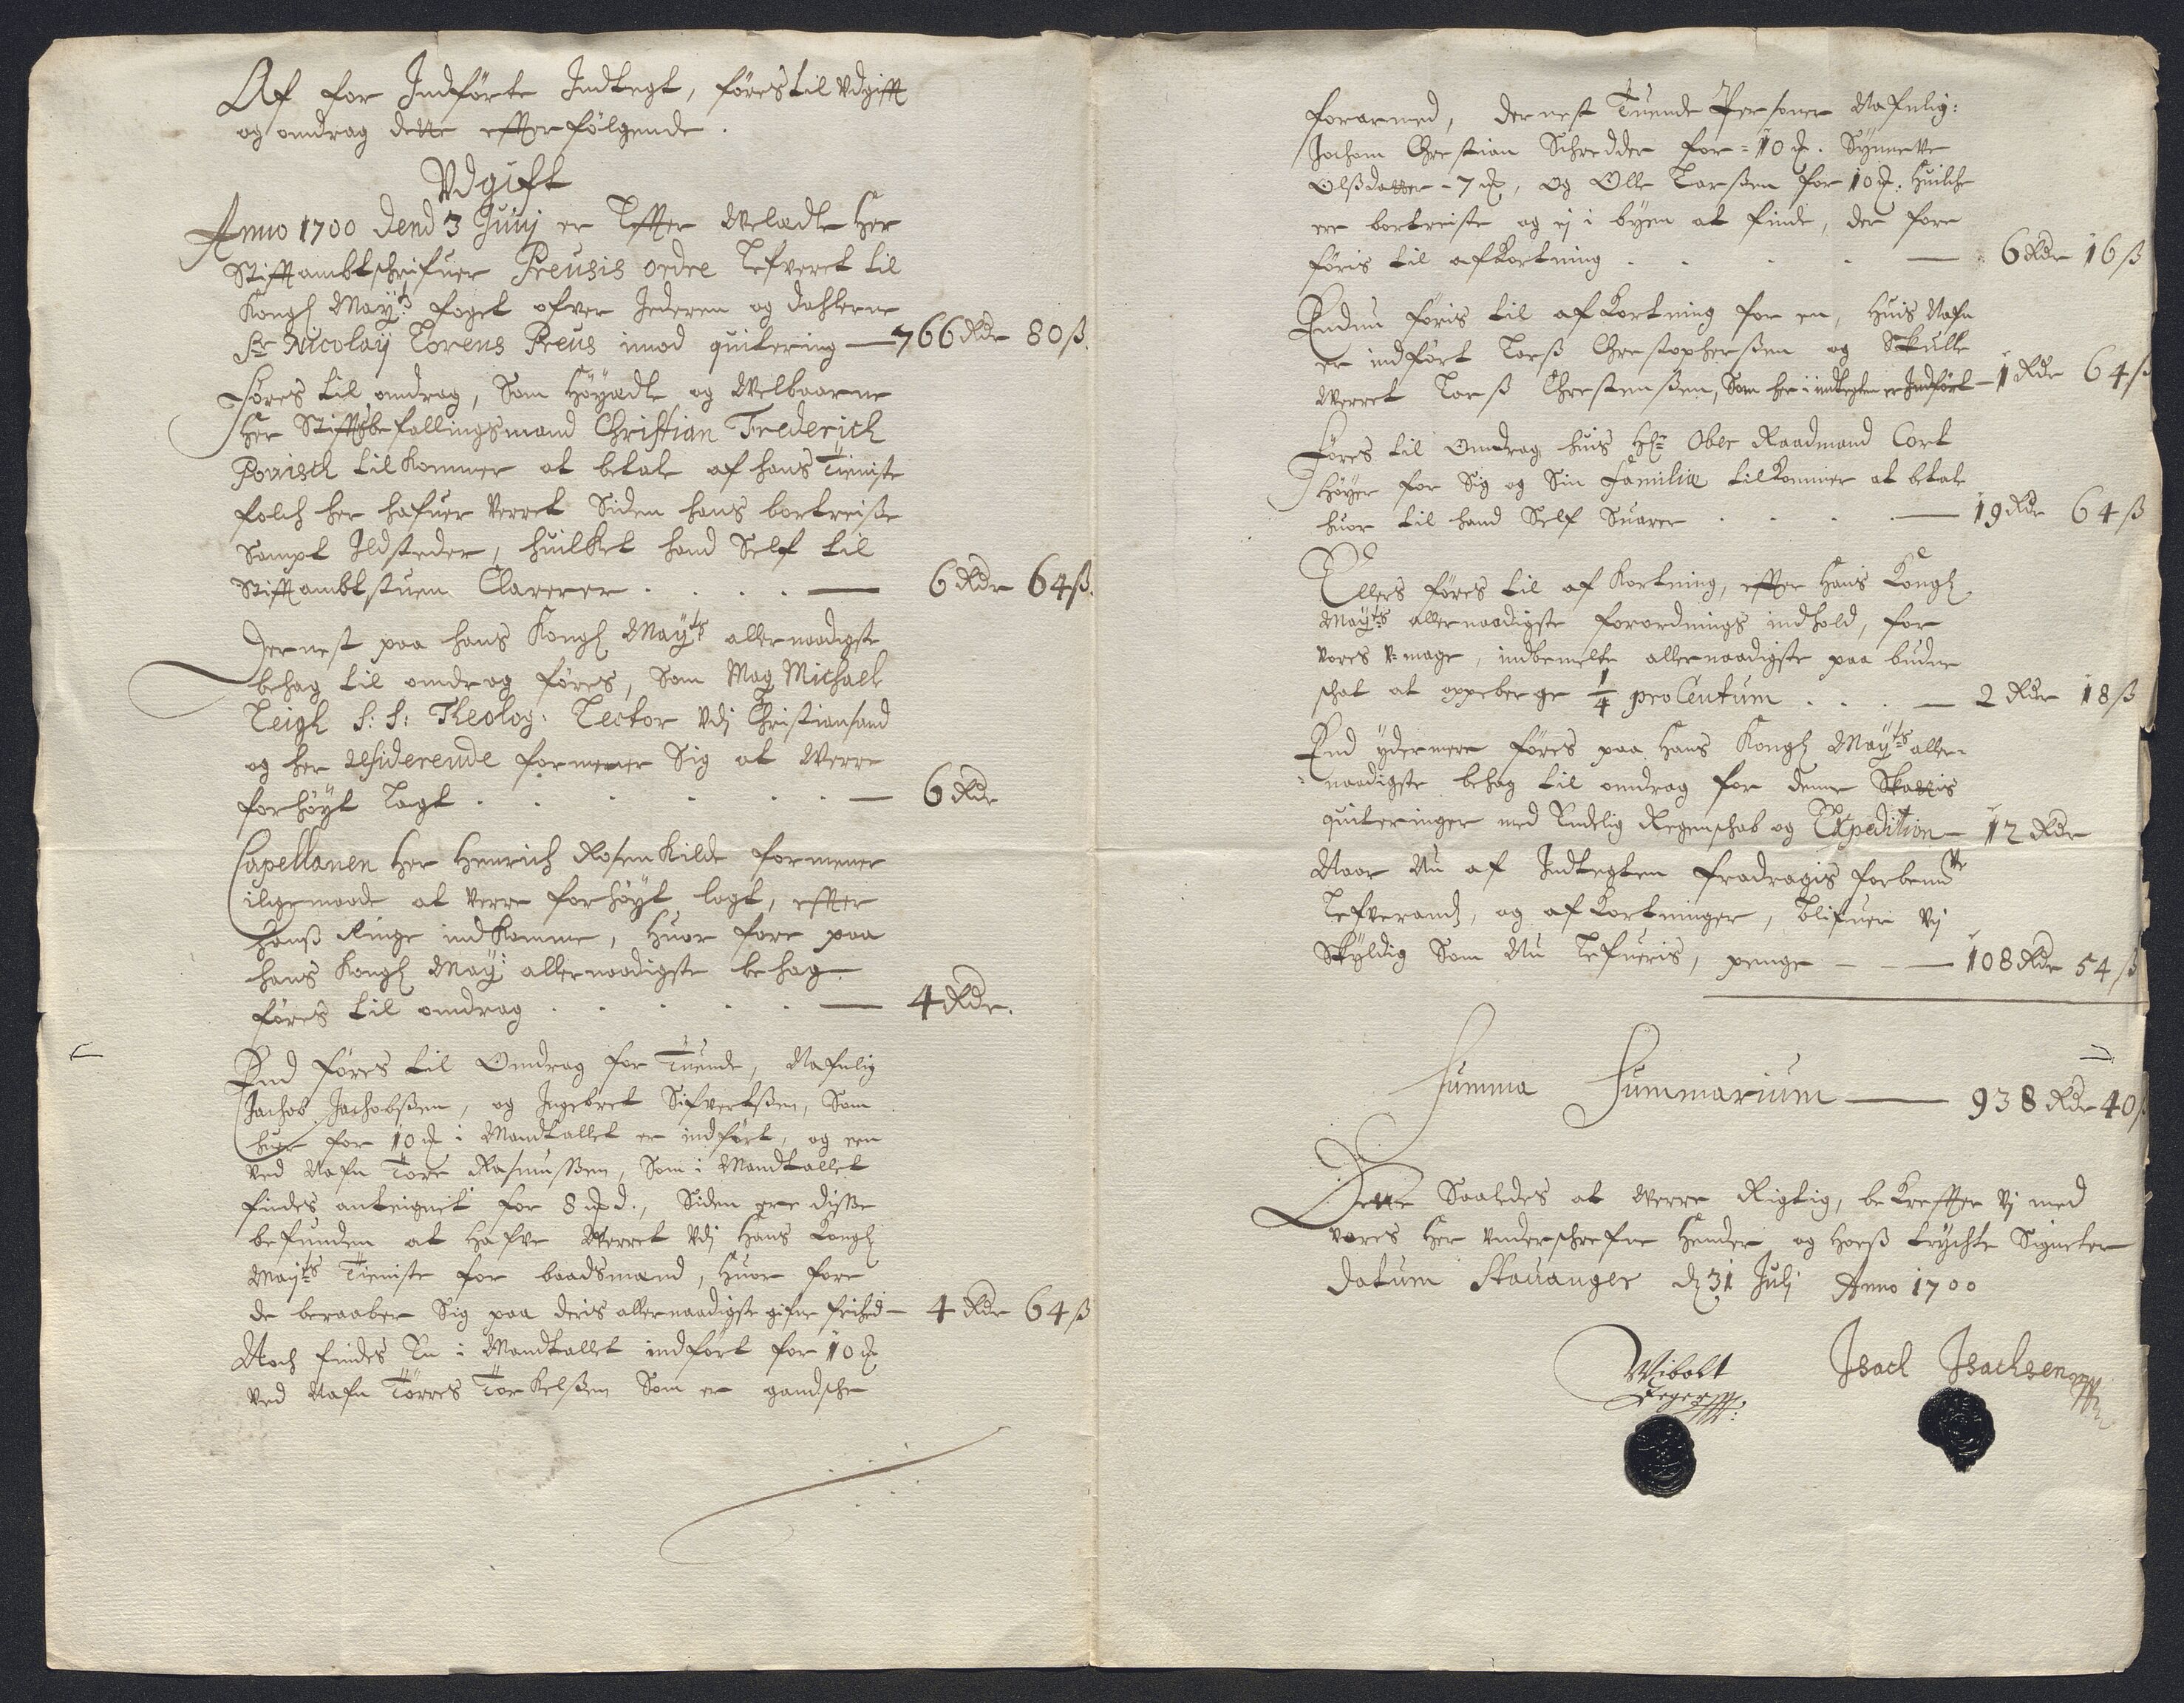 Af for Indförte Indtegt, föres til Vdgifft
og omdrag dette efterfölgende.
Vdgift
Anno 1700 dend 3 Junj er Effter Velædle Her
Stifftambtschrifuer Preusis ordre Lefveret til
Kongl May:ts foget ofver Jederen og dahlerne
Sr Nicolay Lorens Preus imod quitering — 766 Rdr 80 ß.
Föres til omdrag, Som Höyædle og Velbaarne
Her Stifftsbefallingsmand Christian Frederich
Povisch tilkommer at betale af hans Tieniste
folch her hafuer verret Siden hans bortreiße
Sampt Ildsteder, huilket hand Self til
Stifftambtstuen Clarerer . . . . — 6 Rdr 64 ß.
Dernest paa hans Kongl May:ts allernaadigste
behag til omdrag föres, Som Mag Michaell
Leigh S: S: Theolog: Lector Vdj Christiansand
og her residerende formener Sig at Verre
forhöyt Lagt . . . . . . — 6 Rdr
Capellanen Her Henrich Rosenkilde formener
iligemaade at verre forhöyt lagt, effter
hanß Ringe indkomme, Huor fore paa
hans Kongl May: allernaadigste behag
föres til omdrag . . . . . — 4 Rdr.
End föres til Omdrag for Tuende, Nafnlig
Jachob Jachobßen, og Ingebret Sifvertßen, Som
huer for 10 i Mandtallet er indfört, og een
ved Nafn Tore Rasmussen, Som i Mandtallet
findes anteignet for 8, Siden ere disse
befunden at Hafve Verret Vdj Hans Kongl
May:ts Tieniste for baadsmænd, Huor fore
de beraaber Sig paa deris allernaadigste gifne frihed — 4 Rdr 64 ß
Noch findes En i Mandtallet indfört for 10
ved Nafn Törres Torkelßen Som er gandsche
forarmed, dernest Tuende Personer Nafnlig:
Jochom Chrestian Schredder for = 10. Synneve
Olßdatter - 7, og Olle Larßen for 10. Huilche
ere bortreiste og ej i byen at finde, der fore
föris til afKortning . . . . — 6 Rdr 16 ß
Endnu föris til afKortning for en, Huis Nafn
er indfört Larß Chrestopherßen og Skulle
Verret Larß Chrestenßen, Som her i indtegten er Indfört — 1 Rdr 64 ß
Föres til Omdrag huis Hr: Ober Raadmand Cort
Höyer for Sig og Sin Familie tilkommer at betale
huor til hand Self Suarer . . . . — 19 Rdr 64 ß
Ellers föres til afKortning, effter Hans Kongl
May:ts allernaadigste forordnings indhold, for
vores V-mage, indbemelte allernaadigste paabudne
schat at oppeberge 1/4 pro Centum . . . — 2 Rdr 18 ß
End ydermere föres paa Hans Kongl May:ts aller=
=naadigste behag til omdrag for denne Skattis
quiteringer med Endelig Regenschab og Expedition — 12 Rdr
Naar Nu af Indtegten fradragis forbemte
Lefverand, og afKortninger, blifuer vj
Skyldig Som Nu Lefueris, penge — — — 108 Rdr 54 ß
Summa Summarium — 938 Rdr 40 ß
Dette Saaledes at Verre Rigtig, beKreffter Vj med
vores Her Vnderschrefne Hender og hoeß trychte Signeter
Datum Stauanger d 31 Julj Anno 1700
Wibolt
Jeger
Isach Isachsen